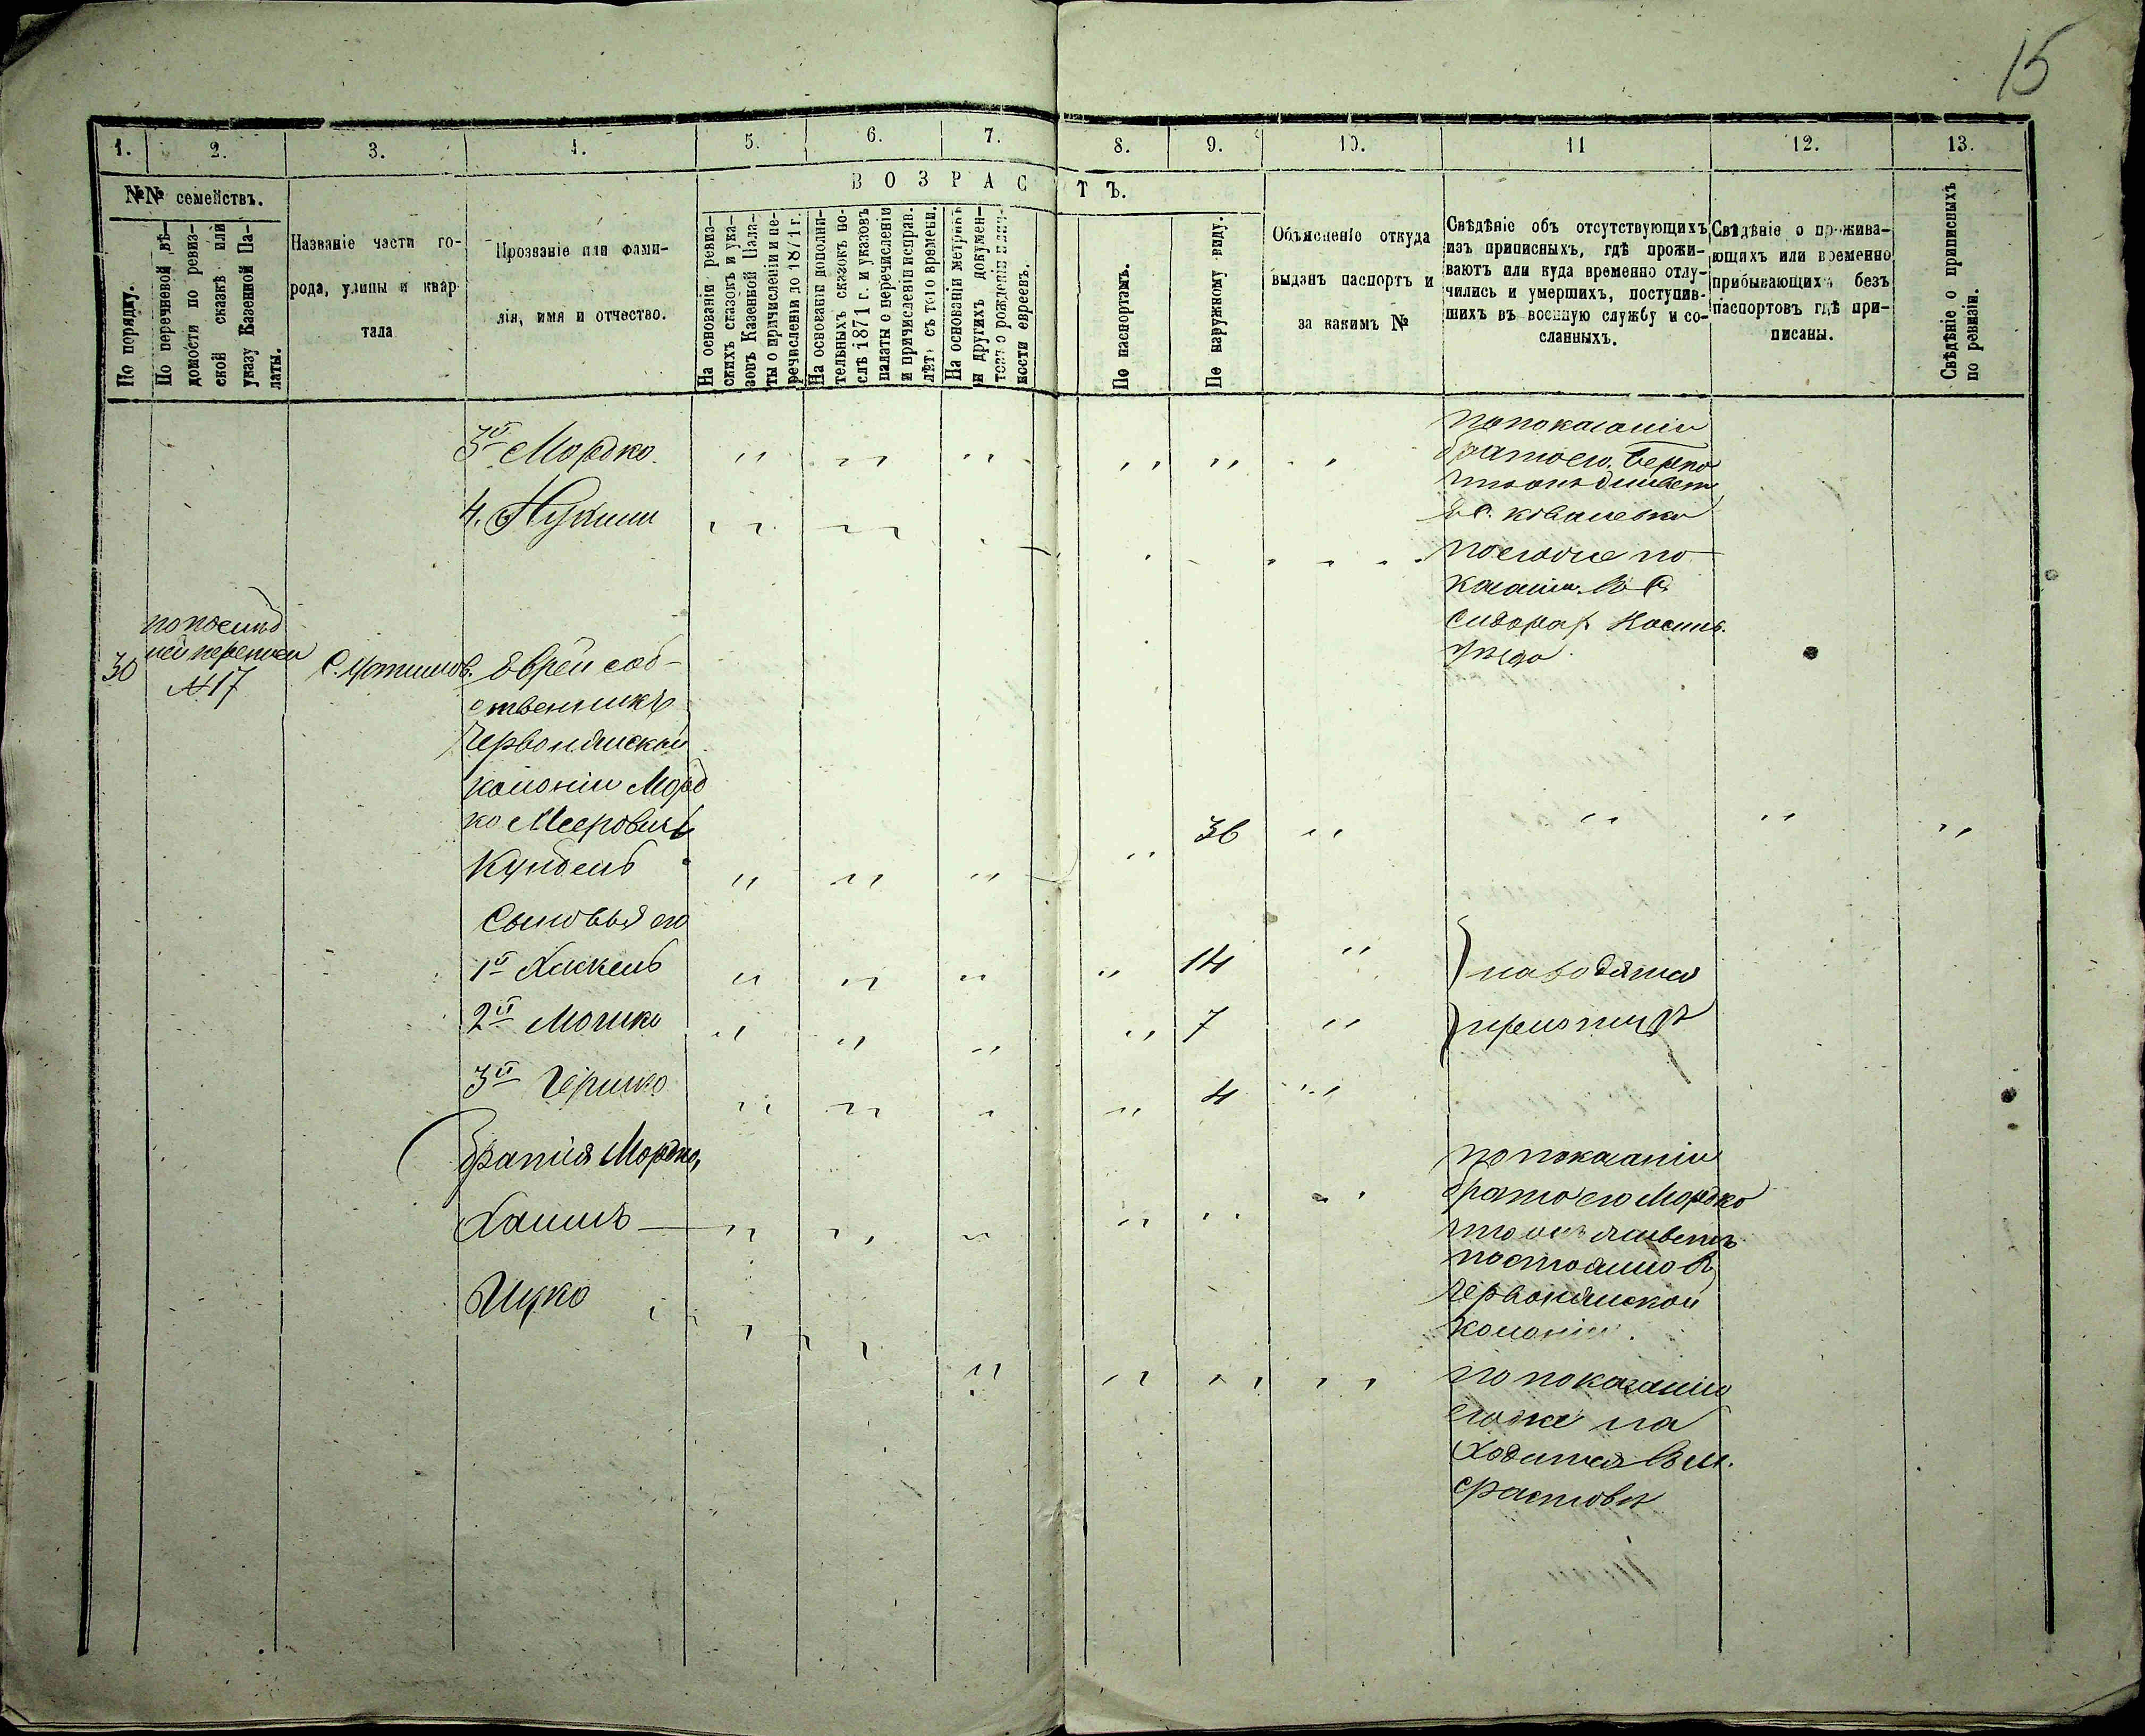 15
1. 2. 3. 4. 5. 6. 7. 8. 9. 10. 11 12. 13.
№№ семействъ.
По порядку.
По перечневой вѣ-
домости по ревиз-
ской сказкѣ или
указу Казенной Па-
латы.
Названіе части го-
рода, улицы и квар-
тала
Прозваніе или фами-
лія, имя и отчество.
ВОЗРАСТЪ.
На основаніи ревиз-
скихъ сказокъ и ука-
зовъ Казенной Пала-
ты о причисленіи и пе-
речисленіи до 1871 г.
На основаніи дополни-
тельныхъ сказокъ по-
слѣ 1871 г. и указовъ
палаты о перечисленіи
и причисленіи исправ.
лѣтъ съ того времени.
На основаніи метрикъ
и другихъ докумен-
товъ о рожденіи
ности евреевъ.
По паспортамъ.
По наружному виду.
Объясненіе откуда
выданъ паспортъ и
за какимъ №
Свѣдѣніе объ отсутствующихъ
изъ приписныхъ, гдѣ прожи-
ваютъ или куда временно отлу-
чились и умершихъ, поступив-
шихъ въ военную службу и со-
сланныхъ.
Свѣдѣніе о прожива-
ющихъ или временно
прибывающихъ безъ
паспортовъ гдѣ при-
писаны.
Свѣдѣніе о приписныхъ
по ревизіи.
3й Мордко
по показанію
брата его Берко
что онъ
в с.
4.
по его же по
казанію въ с.
уезда
30
по послѣд
ней переписи
№ 17
Еврей соб-
ственникъ
Червонянской
колоніи Морд
ко Мееровичъ
36
Сыновья его
1й Хаскель 14 находятся
2й Мошко 7 при отцѣ
3й Гершко 4
братья Мордко,
Хаимъ
по показанію
брата его Мордко
что онъ живетъ
постоянно въ
Червонянской
колоніи.
Ицко
по показанію
его же на
ходится въ м.